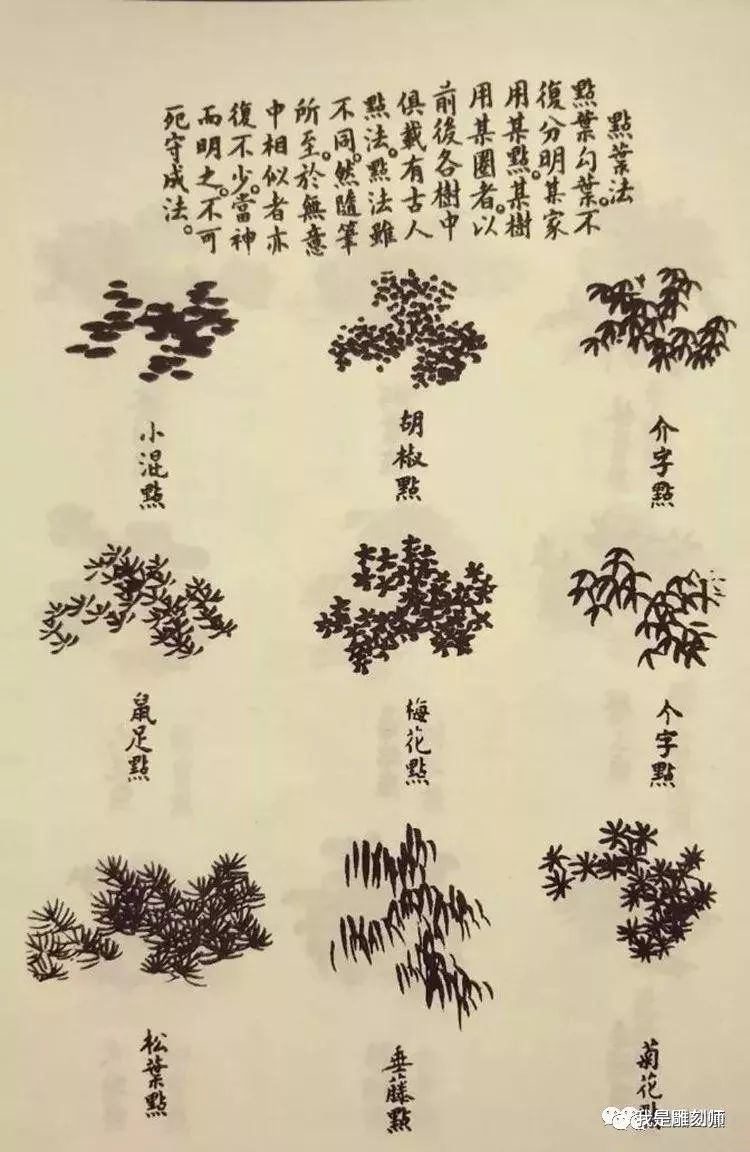 點葉法
點葉勾葉。不
復分明某家
用某點。某樹
用某圈者。以
前後各樹中
俱載有古人
點法。點法雖
不同。然隨筆
所至。於無意
中相似者亦
復不少。當神
而明之。不可
死守成法。
介字點
胡椒點
小混點
个字點
梅花點
鼠足點
菊花點
垂藤點
松葉點
我是雕刻师